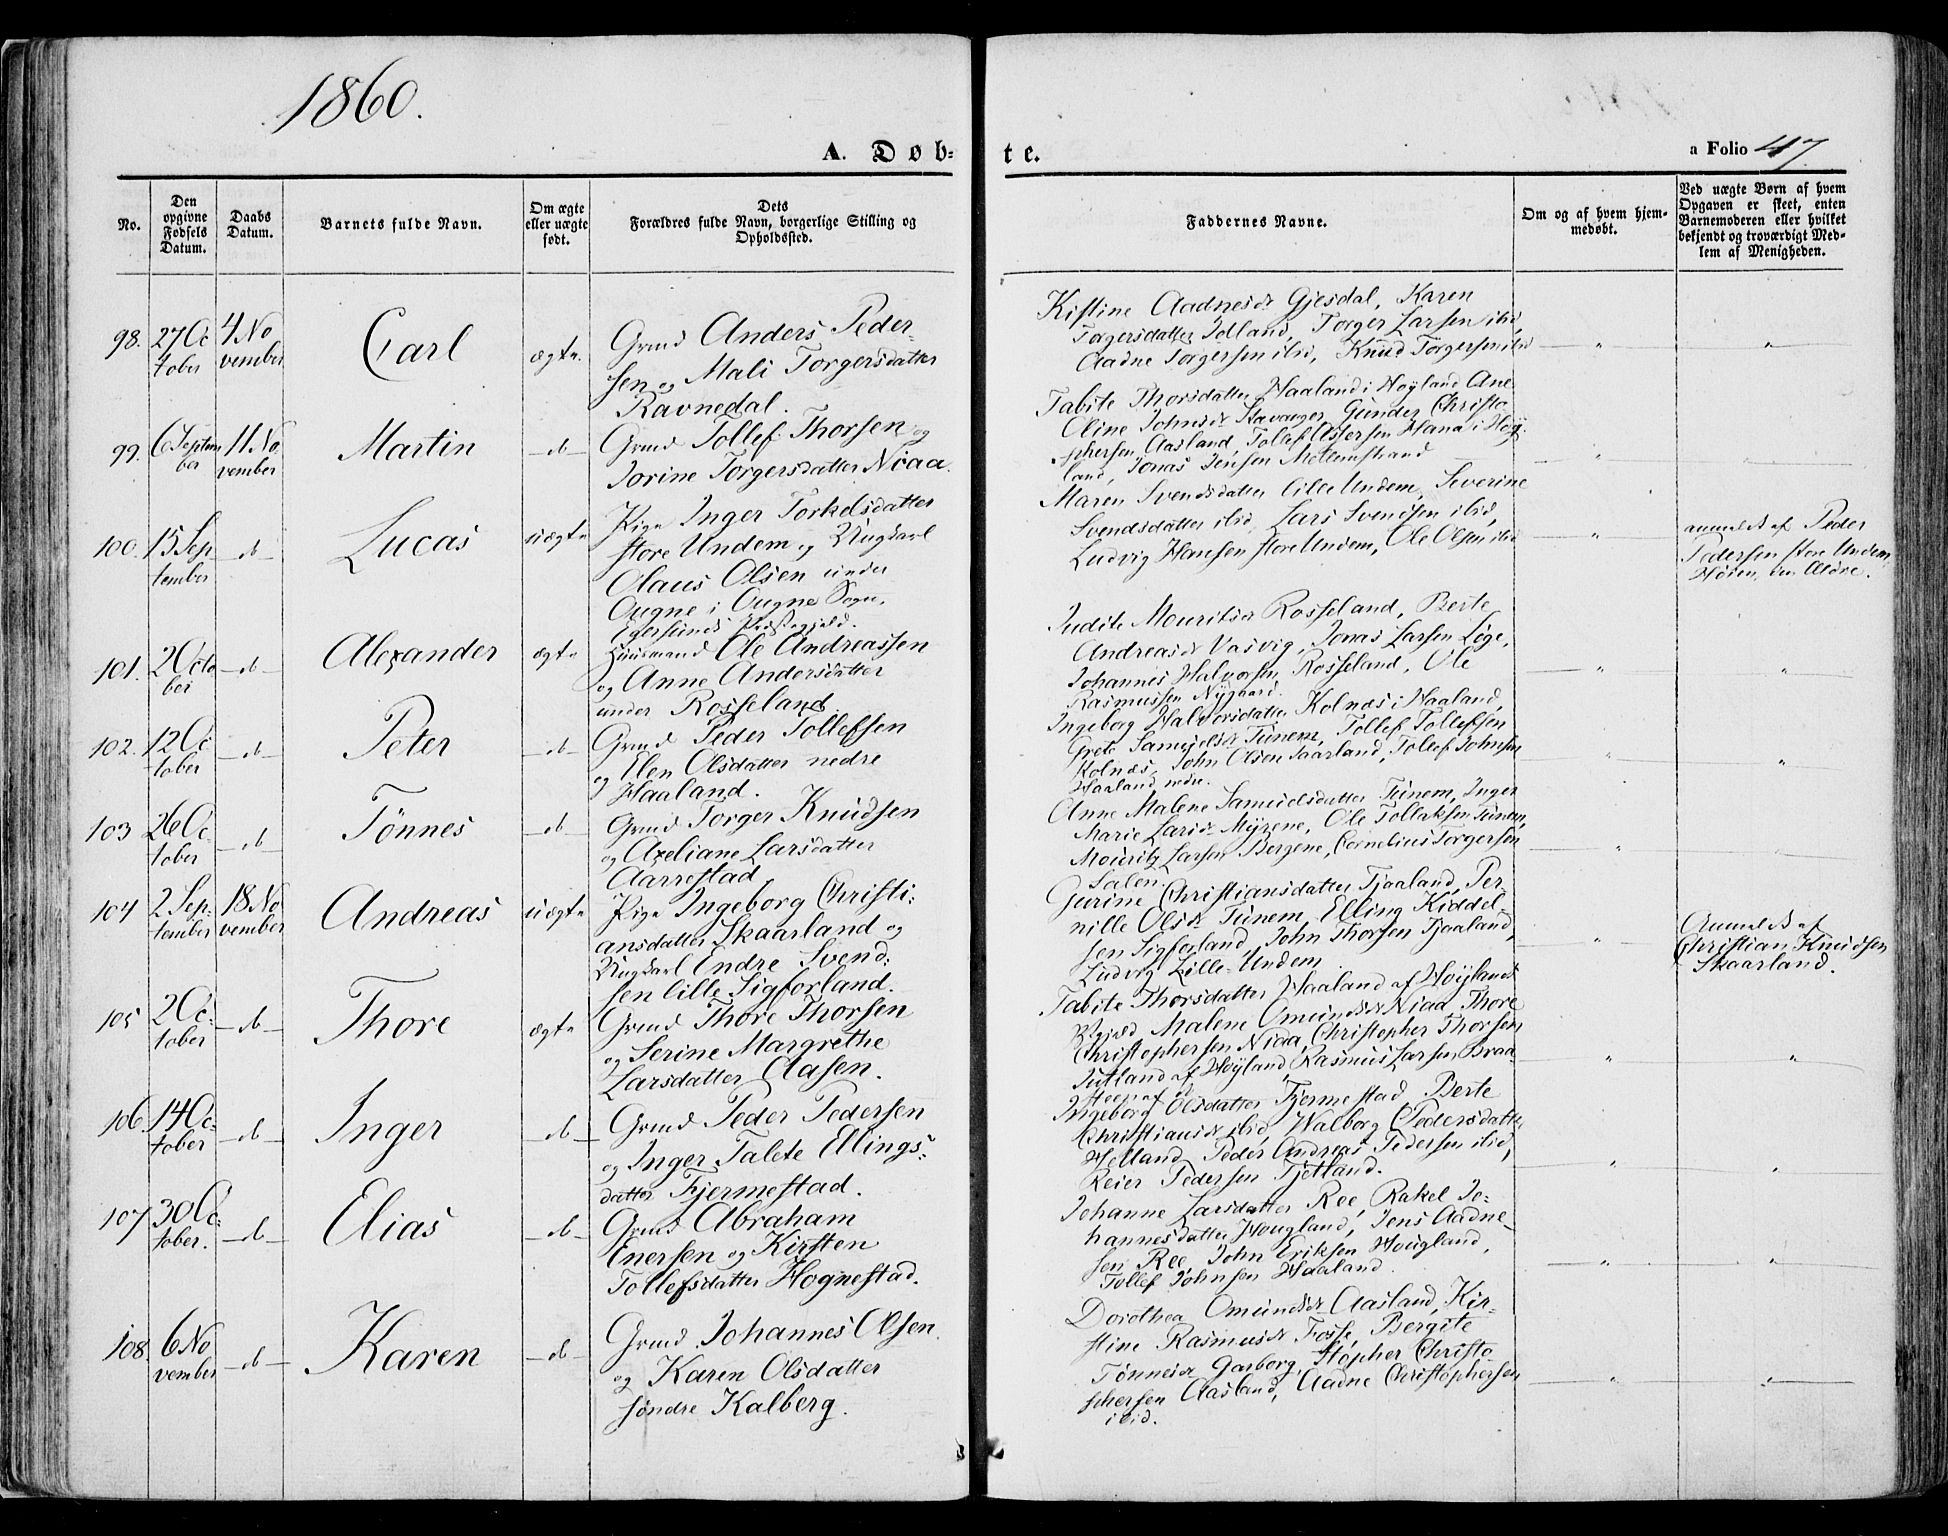 1860.
A. Døb-
te.
a Folio 47
No.
Den
opgivne
Fødsels
Datum.
Daabs
Datum.
Barnets fulde Navn.
Om ægte
eller uægte
født.
Dets
Forældres fulde Navn, borgerlige Stilling og
Opholdssted.
Faddernes Navne.
Om og af hvem hjem-
medøbt.
Ved uægte Børn af hvem
Opgaven er skeet, enten
Barnemoderen eller hvilket
bekjendt og troværdigt Med-
lem af Menigheden.
98. 27 Oc
tober
4 No
vember
Carl
ægte
Grmd Anders Peder-
sen og Mali Torgersdatter
Ravnedal.
Kistine Aadnesdr Gjesdal, Karen
Torgersdatter Idland, Torger Larsen ibid,
Aadne Torgersen ibid, Knud Torgersen ibid
99. 6 Septem
ber
11 No
vember
Martin
do
Grmd Tollef Thorsen og
Jorine Torgersdatter Niaa.
Tabite Thorsdatter Haaland i Høyland Ane
Oline Johnsdr Stavanger, Gunder Christo
phersen Aasland, Tollef Assersen Hana i Høy-
land, Jonas Jensen Mellemstrand
100. 15 Sep
tember
do
Lucas
uægte
Pige Inger Torkelsdatter
store Undem og Ungkarl
Olaus Olsen under
Ougne i Ougne Sogn,
Egersunds Præstegjeld.
Maren Svendsdatter lille Undem, Severine
Svendsdatter ibid, Lars Svendsen ibid,
Ludvig Hansen store Undem, Ole Olsen ibid
anmeldt af Peder
Pedersen store Undem
den Ældre.
101. 2 Octo
ber
do
Alexander
ægte
Huusmand Ole Andreassen
og Anne Andersdatter
under Rosseland
Judite Mouritsdr Rosseland, Berte
Andreasdr Vasvig, Jonas Larsen Løge,
Johannes Halvorsen Rosseland, Ole
Rasmussen Nygaard.
102. 12 Oc
tober
do
Peter
do
Grmd Peder Tollefsen
og Elen Olsdatter nedre
Haaland.
Ingeborg Halvorsdatter Kolnæs i Haaland,
Grete Samuelsdr Tunem, Tollef Tollefsen
Kolnæs, John Olsen Saarland, Tollef Johnsen
Haaland nedre.
103 26 Oc
tober
do
Tønnes
do
Grmd Torger Knudsen
og Axeliane Larsdatter
Aarrestad
Anne Malene Samuelsdatter Tunem, Inger
Marie Larsdr Myrene, Ole Tollaksen Tunem,
Mouritz Larsen Bergene, Cornelius Torgersen
Salen
104 2 Sep-
tember
18 No
vember
Andreas
uægte
Pige Ingeborg Christi-
ansdatter Skaarland og
Ungkarl Endre Svend-
sen lille Sigforland.
Gurine Christiansdatter Tjaaland, Per-
nille Olsdr Tunem, Elling Kiddel-
sen Sigforland, John Thorsen Tjaaland,
Ludvig Lille-Undem
Anmeldt af
Christian Knudsen
Skaarland.
105 2 Oc-
tober
do
Thore
ægte
Grmd Thore Thorsen
og Serine Margrethe
Larsdatter Aasen.
Tabite Thorsdatter Haaland af Høylands
Pgjæld Malene Omundsdr Niaa Thore
Christophersen Niaa, Christopher Thorsen
Jutland af Høyland, Rasmus Larsen Braa-
106. 14 Oc-
tober
do
Inger
do
Grmd Peder Pedersen
og Inger Talete Ellings-
datter Fjermestad.
Ingeborg Olsdatter Fjermestad Berte
Christiansdr ibid, Walborg Pedersdatter
Helland, Peder Andreas Pedersen ibid,
Reier Pedersen Tjetland.
107 30 Oc-
tober.
do
Elias
do
Grmd Abraham
Enersen og Kirsten
Tollefsdatter Hognestad.
Johanne Larsdatter Ree, Rakel Jo-
hannesdatter Hougland, Jens Aadne-
sen Ree, John Eriksen Hougland,
Tollef Johnsen Haaland.
108. 6 No
vember
do
Karen
do
Grmd. Johannes Olsen
og Karen Olsdatter
søndre Kalberg.
Dorothea Omundsdr Aasland, Kir-
stine Rasmusdr Fosse, Bergite
Tønnesdr Garborg, Stopher Christo
phersen Aasland, Aadne Christophersen
ibid.